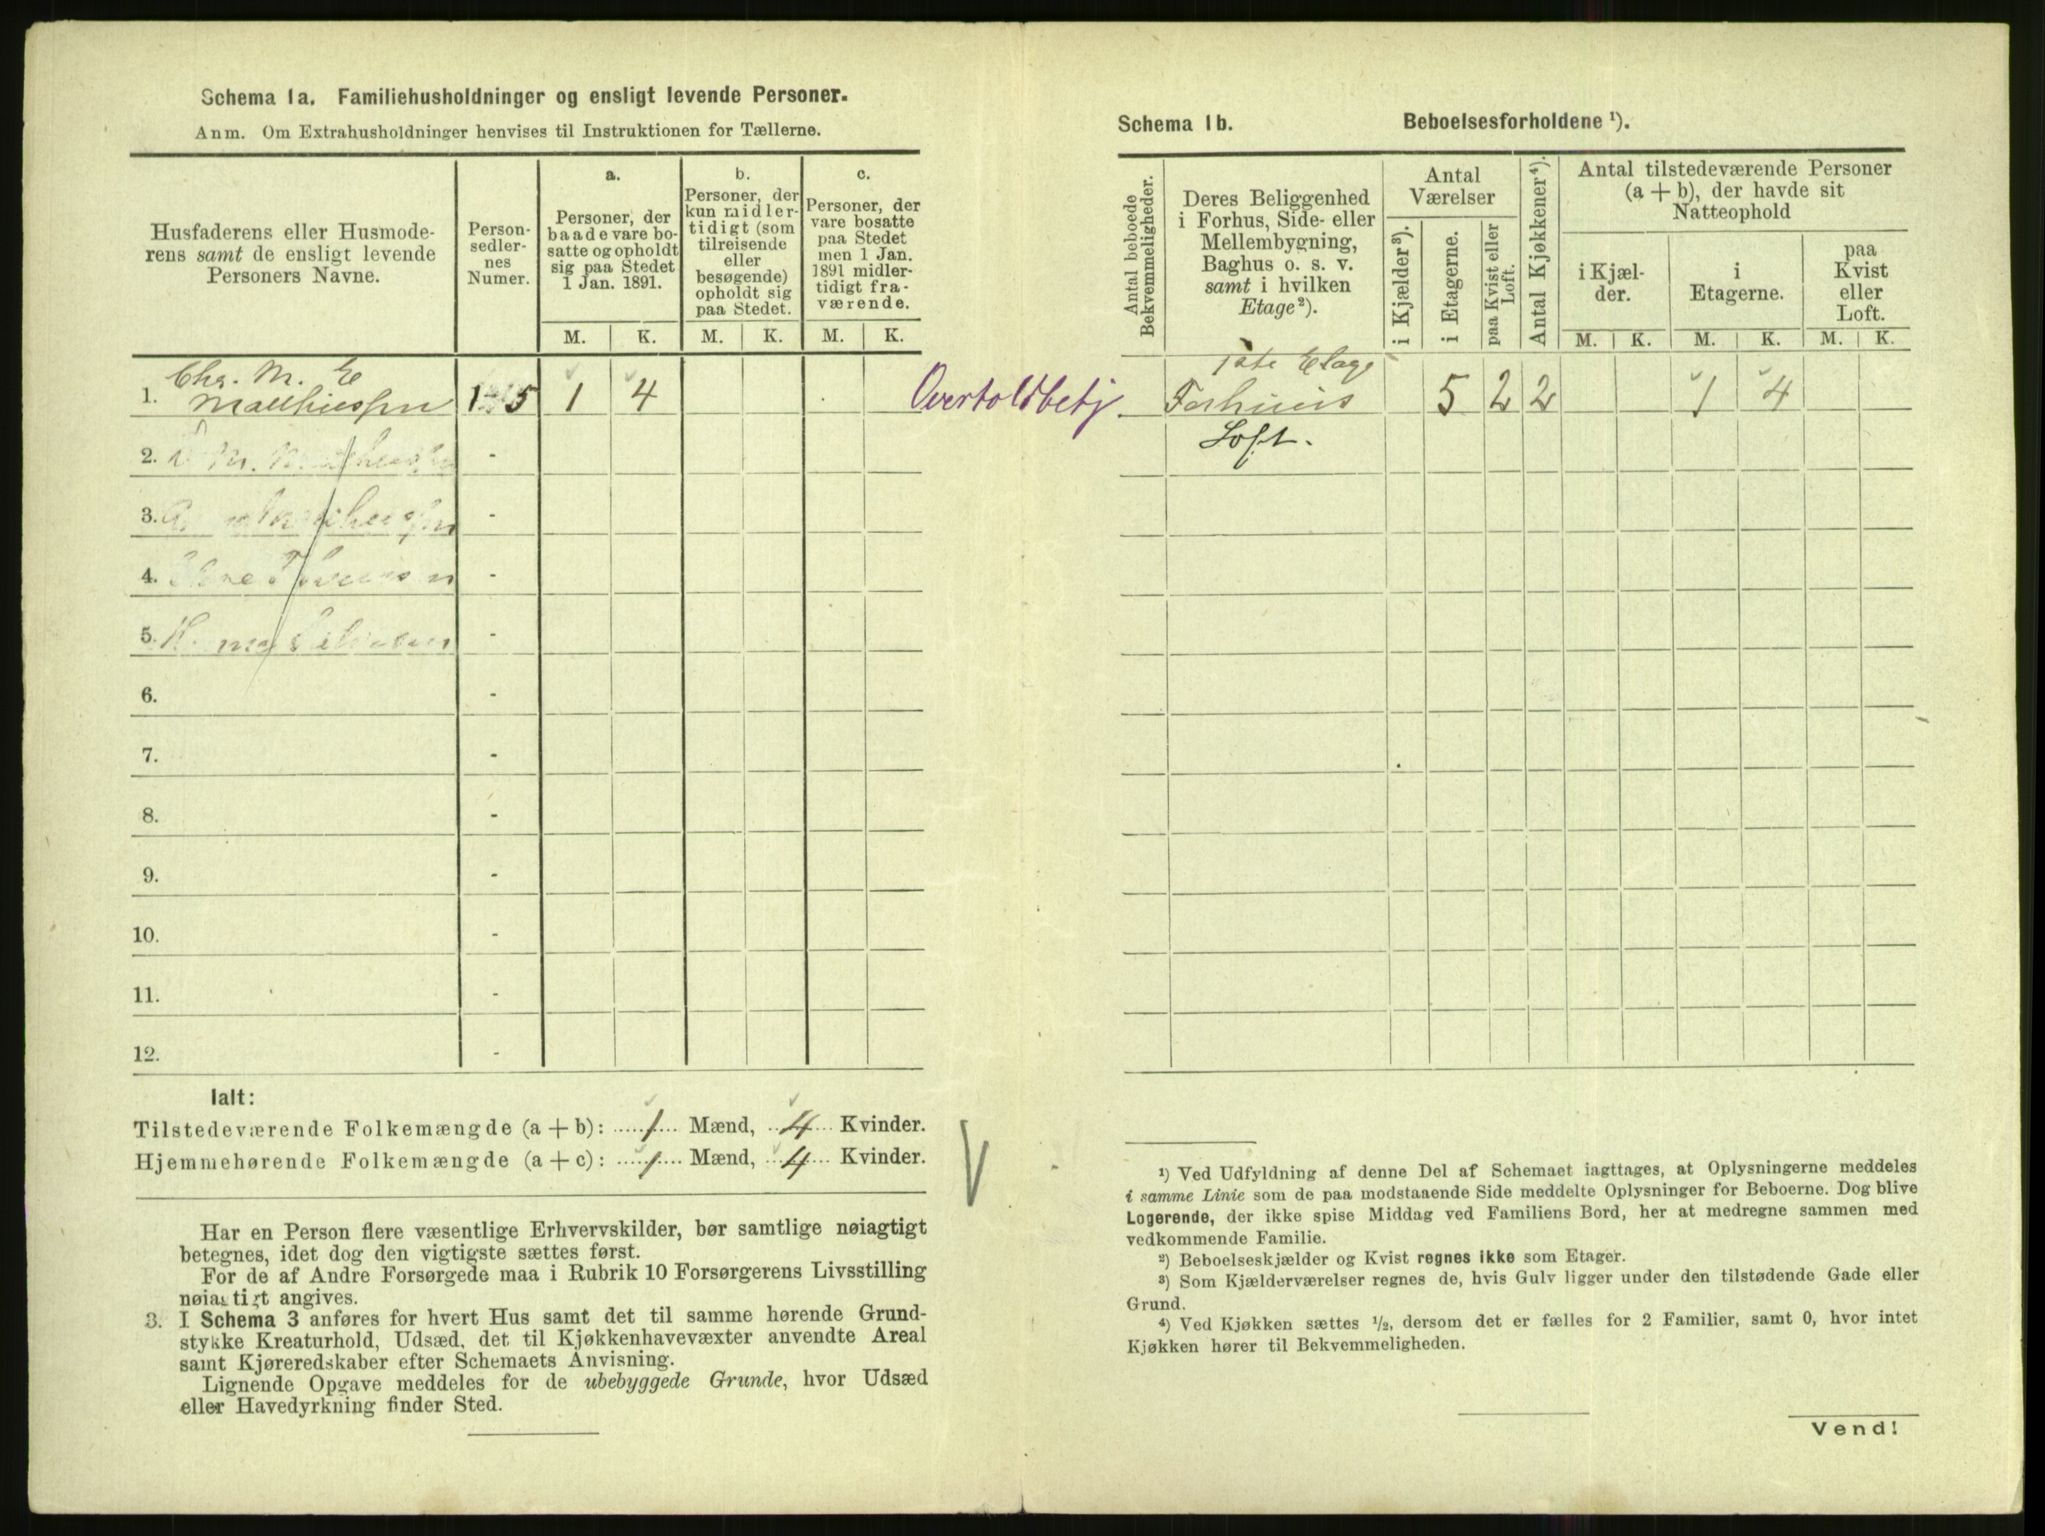 Schema 1a. Familiehusholdninger og ensligt levende Personer.
Anm. Om Extrahusholdninger henvises til Instruktionen for Tællerne.
Husfaderens eller Husmode-
rens samt de ensligt levende
Personers Navne.
Person-
sedler-
nes
Numer.
a.
Personer, der
baade vare bo-
satte og opholdt
sig paa Stedet
1 Jan. 1891.
b.
Personer, der
kun midler-
tidigt (som
tilreisende
eller
besøgende)
opholdt sig
paa Stedet.
c.
Personer, der
vare bosatte
paa Stedet
men 1 Jan.
1891 midler-
tidigt fra-
værende.
M. K. M. K. M. K.
1. Chr. M. E
Matthiessen 1-5 1 4
2. -
3. -
4. -
5. -
6. -
7. -
8. -
9. -
10. -
11. -
12. -
Ialt:
Tilstedeværende Folkemængde (a + b): 1 Mænd, 4 Kvinder.
Hjemmehørende Folkemængde (a + c): 1 Mænd, 4 Kvinder.
Har en Person flere væsentlige Erhvervskilder, bør samtlige nøiagtigt
betegnes, idet dog den vigtigste sættes først.
For de af Andre Forsørgede maa i Rubrik 10 Forsørgerens Livsstilling
nøiagtigt angives.
3. I Schema 3 anføres for hvert Hus samt det til samme hørende Grund-
stykke Kreaturhold, Udsæd, det til Kjøkkenhavevæxter anvendte Areal
samt Kjøreredskaber efter Schemaets Anvisning.
Lignende Opgave meddeles for de ubebyggede Grunde, hvor Udsæd
eller Havedyrkning finder Sted.
Schema 1b. Beboelsesforholdene ¹).
Antal beboede
Bekvemmeligheder.
Deres Beliggenhed
i Forhus, Side- eller
Mellembygning,
Baghus o. s. v.
samt i hvilken
Etage²).
Antal
Værelser
i Kjælder³).
i Etagerne.
paa Kvist eller
Loft.
Antal Kjøkkener⁴).
Antal tilstedeværende Personer
(a + b), der havde sit
Natteophold
i Kjæl-
der.
i
Etagerne.
paa
Kvist
eller
Loft.
M. K. M. K. M. K.
1ste Etage
Overtoldbetj. Forhuus 5 2 2 1 4
Loft.
¹) Ved Udfyldning af denne Del af Schemaet iagttages, at Oplysningerne meddeles
i samme Linie som de paa modstaaende Side meddelte Oplysninger for Beboerne. Dog blive
Logerende, der ikke spise Middag ved Familiens Bord, her at medregne sammen med
vedkommende Familie.
²) Beboelseskjælder og Kvist regnes ikke som Etager.
³) Som Kjælderværelser regnes de, hvis Gulv ligger under den tilstødende Gade eller
Grund.
⁴) Ved Kjøkken sættes ½, dersom det er fælles for 2 Familier, samt 0, hvor intet
Kjøkken hører til Bekvemmeligheden.
Vend!